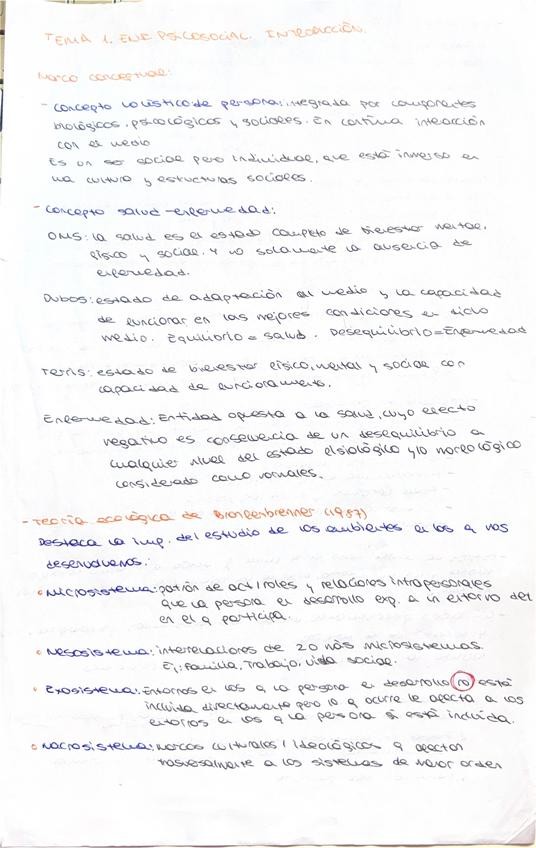 TEMA 1. ENF PSICOSOCIAL. INTRODUCCIÓN.
Marco conceptual:
- Concepto holístico de persona: integrada por componentes
biológicos, psicológicos y sociales. En continua interacción
con el medio
Es un ser social pero individual, que está inmerso en
una cultura y estructuras sociales.
- Concepto salud-enfermedad:
OMS: la salud es el estado completo de bienestar mental,
físico y social. Y no solamente la ausencia de
enfermedad.
Dubos: estado de adaptación al medio y la capacidad
de funcionar en las mejores condiciones en dicho
medio. Equilibrio = salud. Desequilibrio = Enfermedad
Terris: estado de bienestar físico, mental y social con
capacidad de funcionamiento.
Enfermedad: Entidad opuesta a la salud, cuyo efecto
negativo es consecuencia de un desequilibrio a
cualquier nivel del estado fisiológico y/o morfológico
considerado como normales.
- Teoría ecológica de Bronfenbrenner (1987)
Destaca la imp. del estudio de los ambientes en los q nos
desenvolvemos:
• Microsistema: patrón de act/roles y relaciones intrapersonales
que la persona en desarrollo exp. a un entorno del
en el q participa.
• Mesosistema: interrelaciones de 2 o más microsistemas.
Ej: Familia, Trabajo, vida social.
• Exosistema: Entornos en los q la persona en desarrollo no está
incluida directamente pero lo q ocurre le afecta a los
entornos en los q la persona si está incluida.
• Macrosistema: Marcos culturales / Ideológicos q afectan
trasversalmente a los sistemas de menor orden